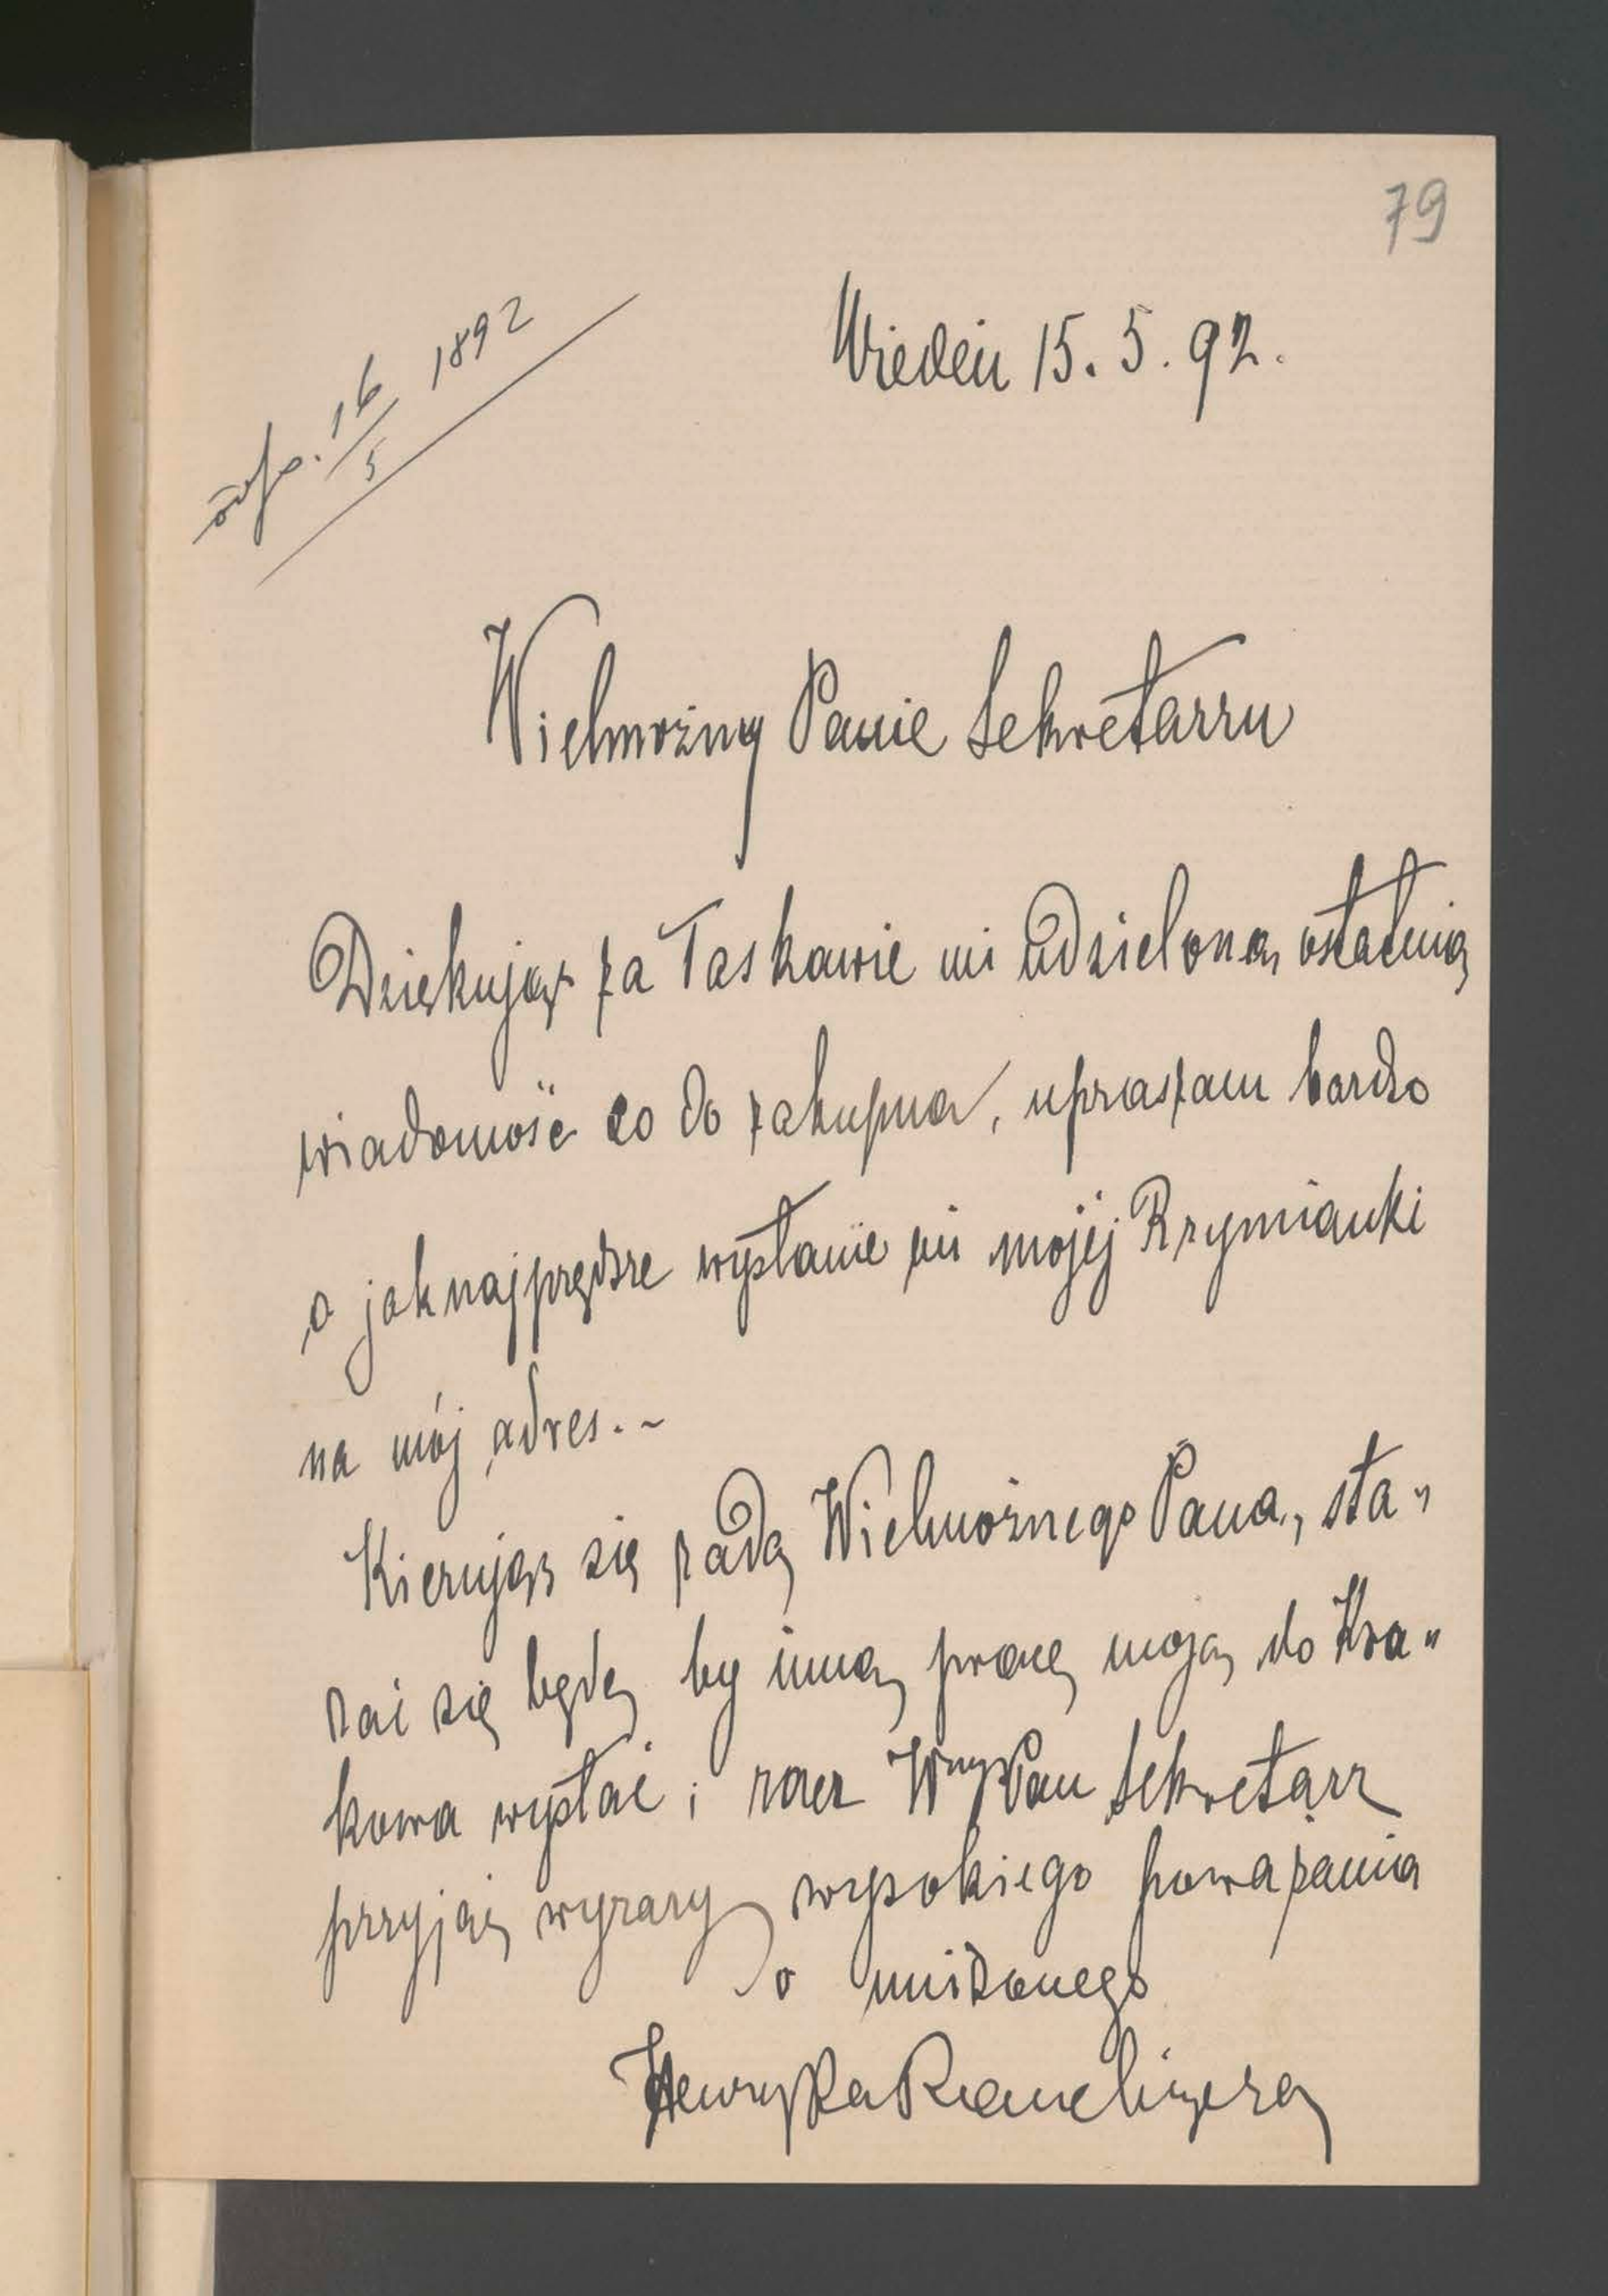 79
Wiedeń 15. 5. 92.
odp. 16/5 1892
Wielmożny Panie Sekretarzu
Dziękując za łaskawie mi udzieloną ostatnią
wiadomość co do zakupna, upraszam bardzo
o jaknajprędsze wysłanie mi mojéj Rzymianki
na mój adres. -
Kierując się radą Wielmożnego Pana, sta„
rać się będę by inną pracę moją do Kra„
kowa wysłać i racz Wny Pan Sekretarz
przyjąć wyrazy wysokiego poważania
o uniżonego
Henryka Rauchingera